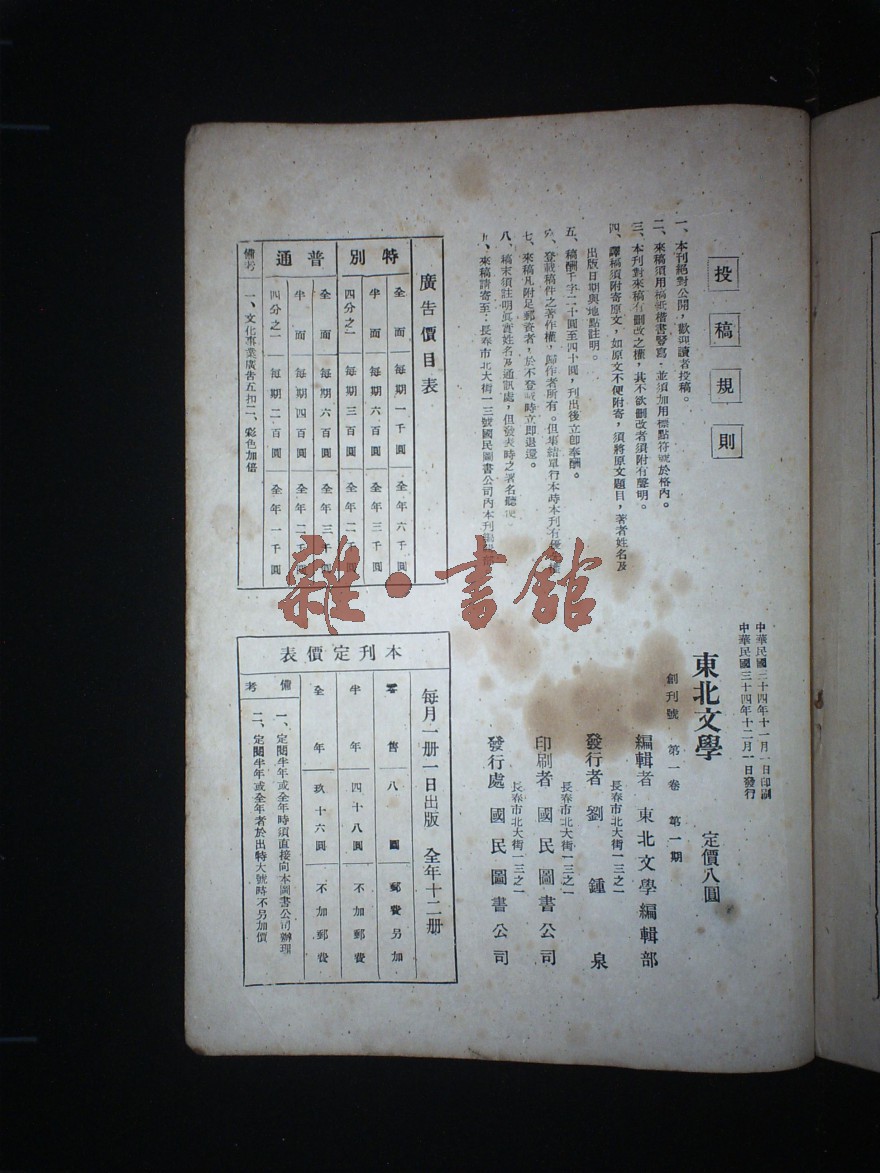 投稿規則
一、本刊絕對公開，歡迎讀者投稿。
二、來稿須用稿紙楷書謄寫，並須加用標點符號於格內。
三、本刊對來稿有刪改之權，其不欲刪改者須附有聲明。
四、譯稿須附寄原文，如原文不便附寄，須將原文題目，著者姓名及
出版日期與地點註明。
五、稿酬千字二十圓至四十圓，刊出後立卽奉酬。
六、登載稿件之著作權，歸作者所有。但集結單行本時本刊有優
七、來稿凡附足郵資者，於不登載時立卽退還。
八、稿末須註明眞實姓名及通訊處，但發表時之署名聽便
九、來稿請寄至：長春市北大街一三號國民圖書公司內本刊
廣告價目表
特別
全面 每期一千圓 全年六千圓
半面 每期六百圓 全年三千圓
四分之一 每期三百圓 全年二千圓
普通
全面 每期六百圓 全年三千圓
半面 每期四百圓 全年二千圓
四分之一 每期二百圓 全年一千圓
備考 一、文化事業廣告五扣二、彩色加倍
中華民國三十四年十一月一日印刷
中華民國三十四年十二月一日發行
東北文學 定價八圓
創刊號 第一卷 第一期
編輯者 東北文學編輯部
長春市北大街一三之一
發行者 劉鍾泉
長春市北大街一三之一
印刷者 國民圖書公司
長春市北大街一三之一
發行處 國民圖書公司
本刊定價表
每月一册一日出版 全年十二册
零售 八圓 郵費另加
半年 四十八圓 不加郵費
全年 玖十六圓 不加郵費
備考
一、定閱半年或全年時須直接向本圖書公司辦理
二、定閱半年或全年者於出特大號時不另加價
雜·書館